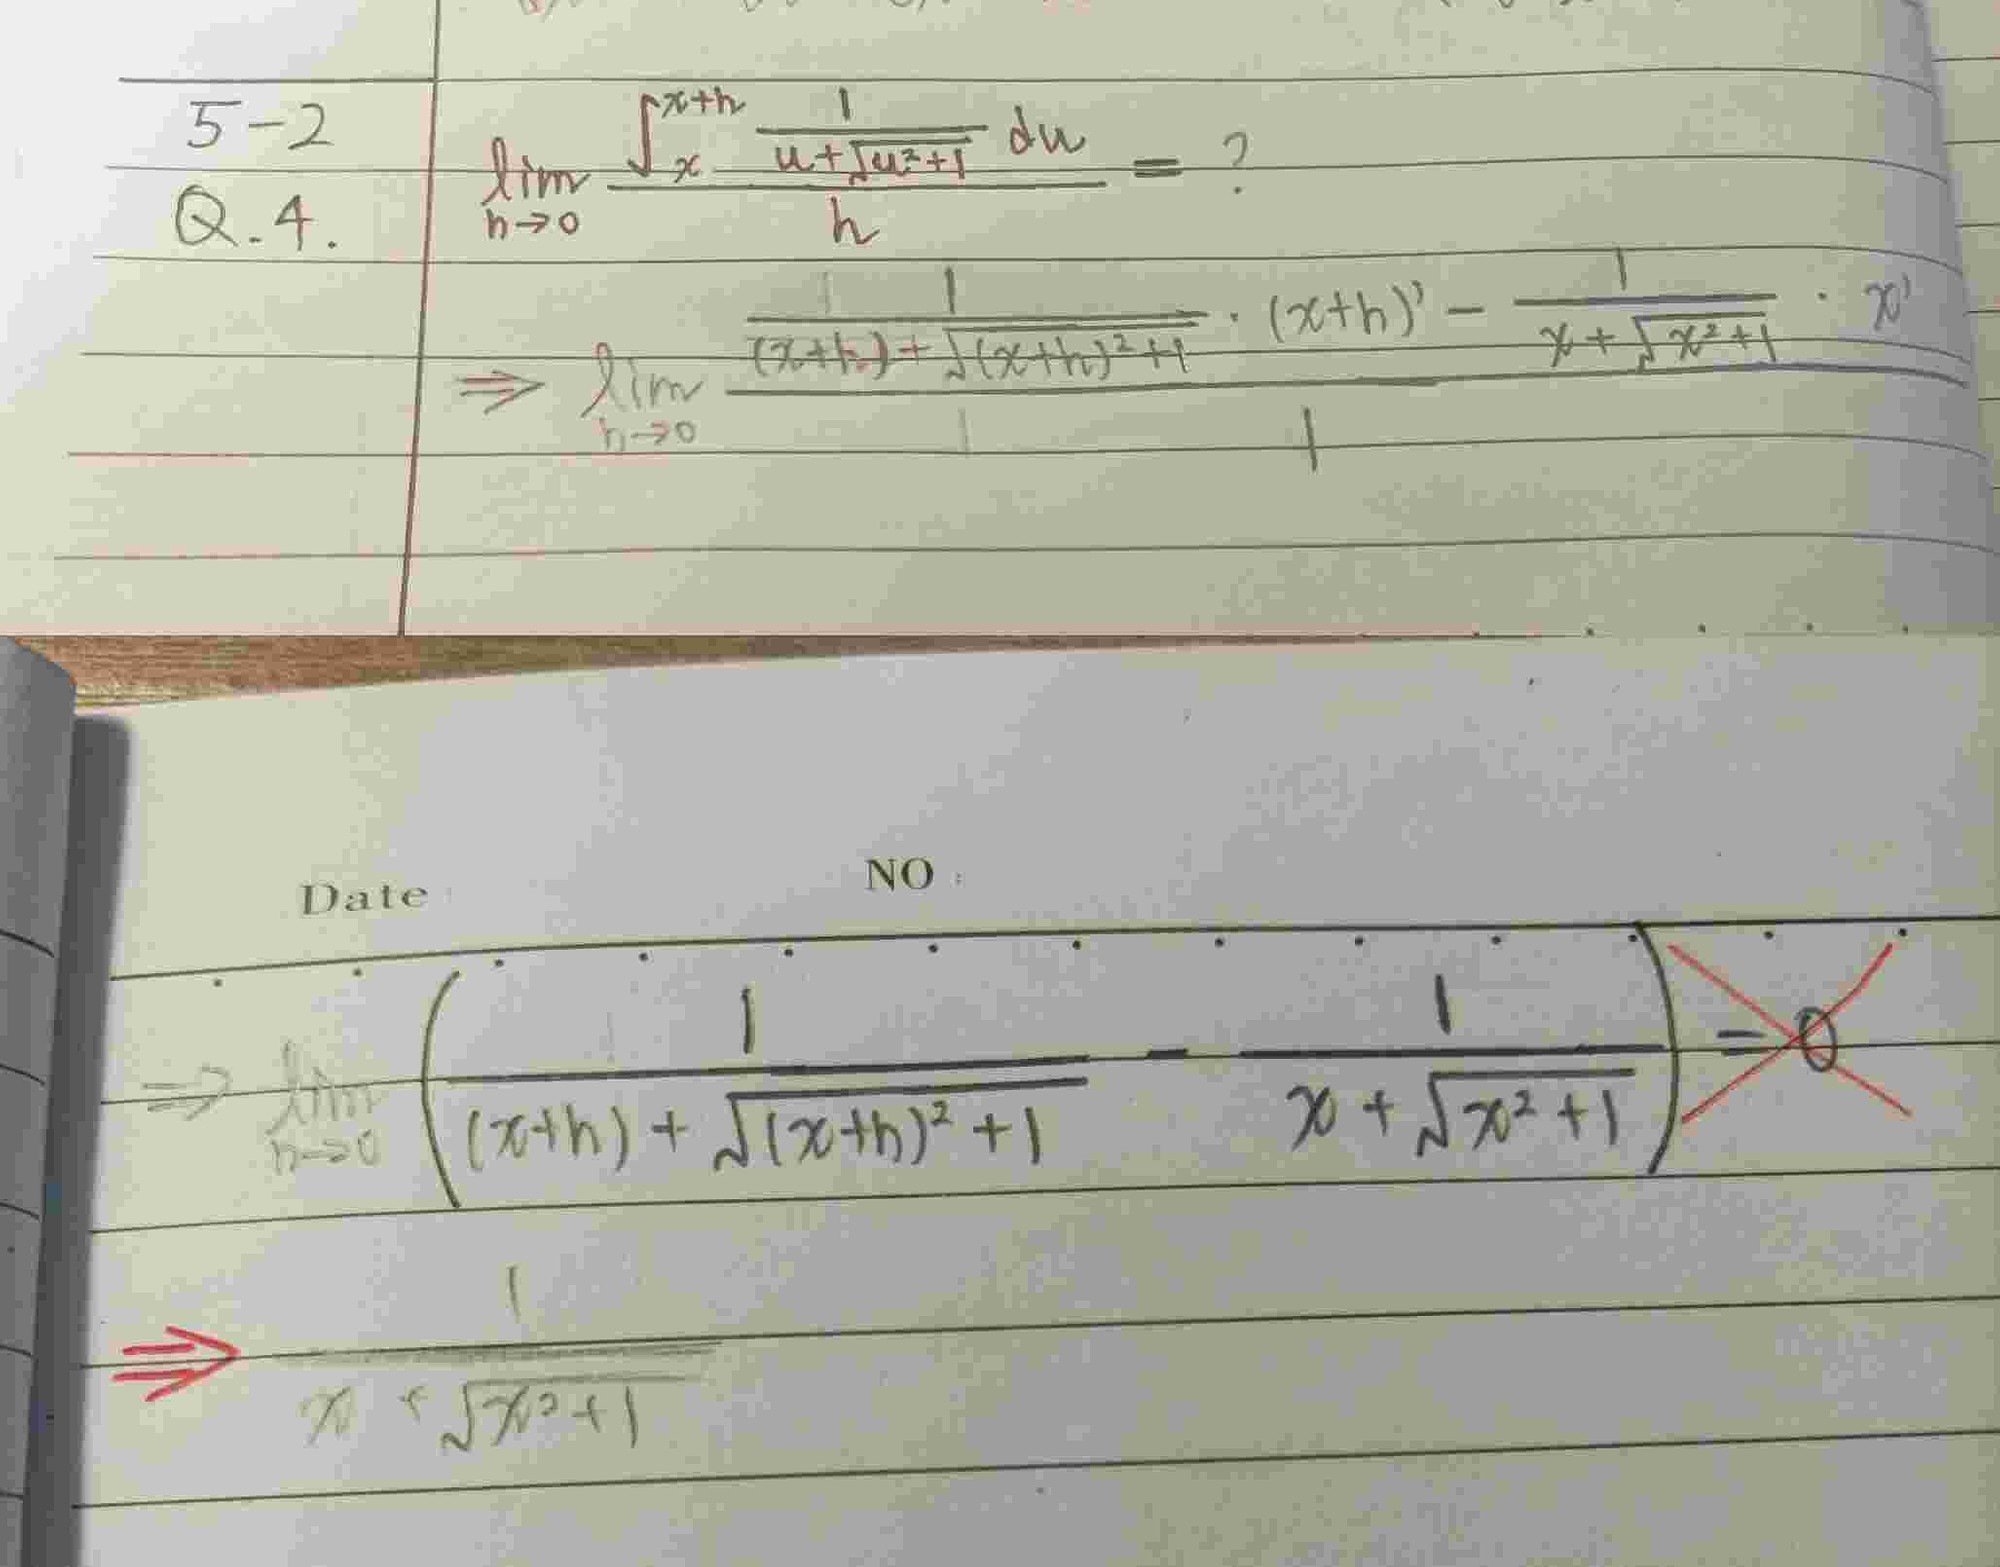 5-2
Q.4.
lim h→0 ∫_x^{x+h} 1/(u+√(u²+1)) du / h = ?
⇒ lim h→0 (1/((x+h)+√((x+h)²+1)) · (x+h)' − 1/(x+√(x²+1)) · x') / 1
Date NO :
⇒ lim h→0 (1/((x+h)+√((x+h)²+1)) − 1/(x+√(x²+1))) = 0
⇒ 1/(x+√(x²+1))